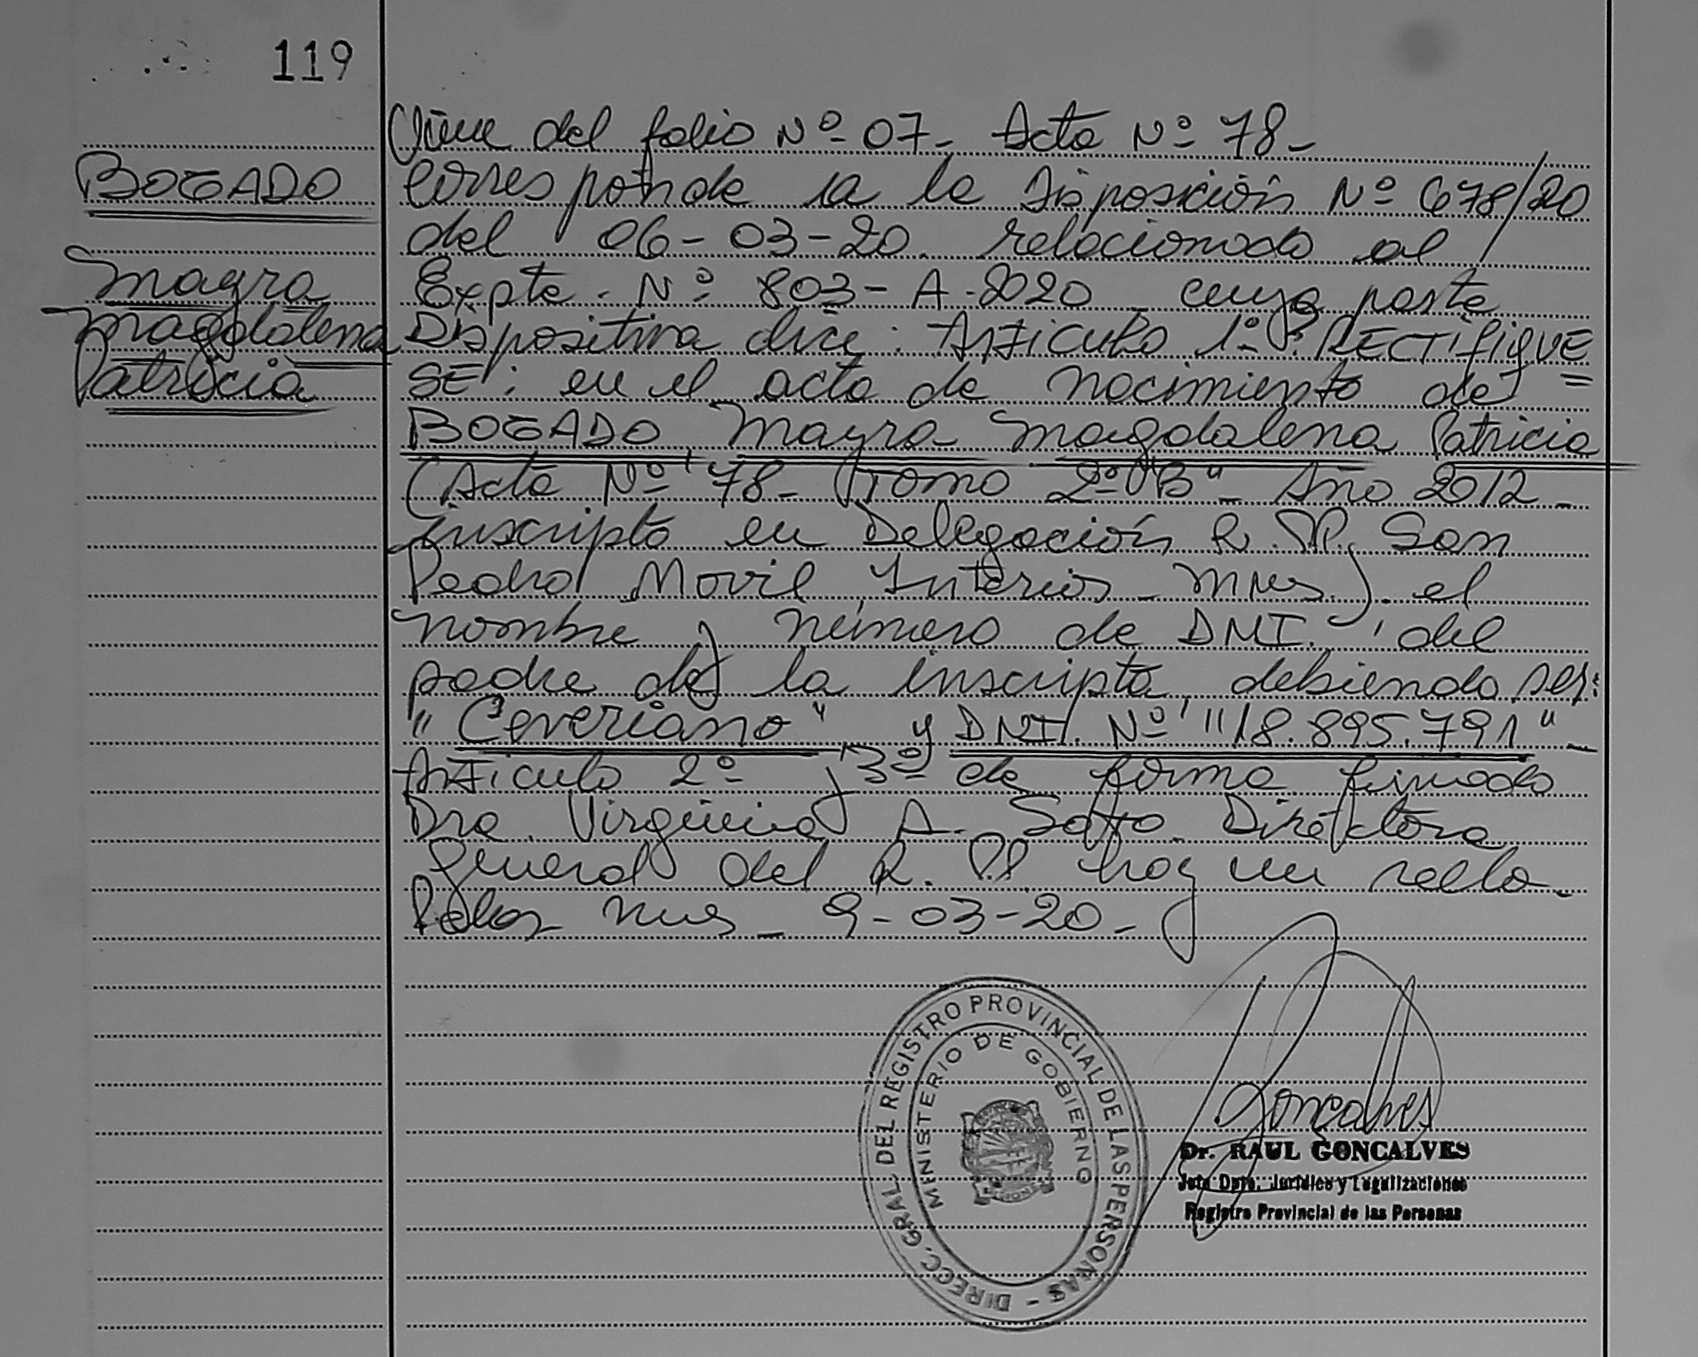 119
BOGADO
Mayra
Magdalena
Patricia
Viene del folio Nº 07- Acta Nº 78-
Corresponde a la Disposición Nº 678/20
del 06-03-20. relacionado al
Expte. Nº 803-A-2020 cuya parte
Dispositiva dice: Articulo 1º: RECTIFIQUE
SE: en el acta de nacimiento de
BOGADO Mayra Magdalena Patricia
(Acta Nº 78- Tomo 2º "B" - Año 2012-
inscripta en Delegación R.P.P. San
Pedro Movil Interior - Mnes.) el
nombre y número de DNI. del
padre de la inscripta, debiendo ser:
"Ceveriano" y DNI. Nº "18.895.791"-
Articulo 2º y 3º de forma firmado
Dra. Virginia A. Soto. Directora
General del R.P.P. hay un sello-
Pdas Mnes - 9-03-20-
DIRECC. GRAL. DEL REGISTRO PROVINCIAL DE LAS PERSONAS -
MINISTERIO DE GOBIERNO
Goncalves
Dr. RAUL GONCALVES
Jefe Dpto. Jurídico y Legalizaciones
Registro Provincial de las Personas